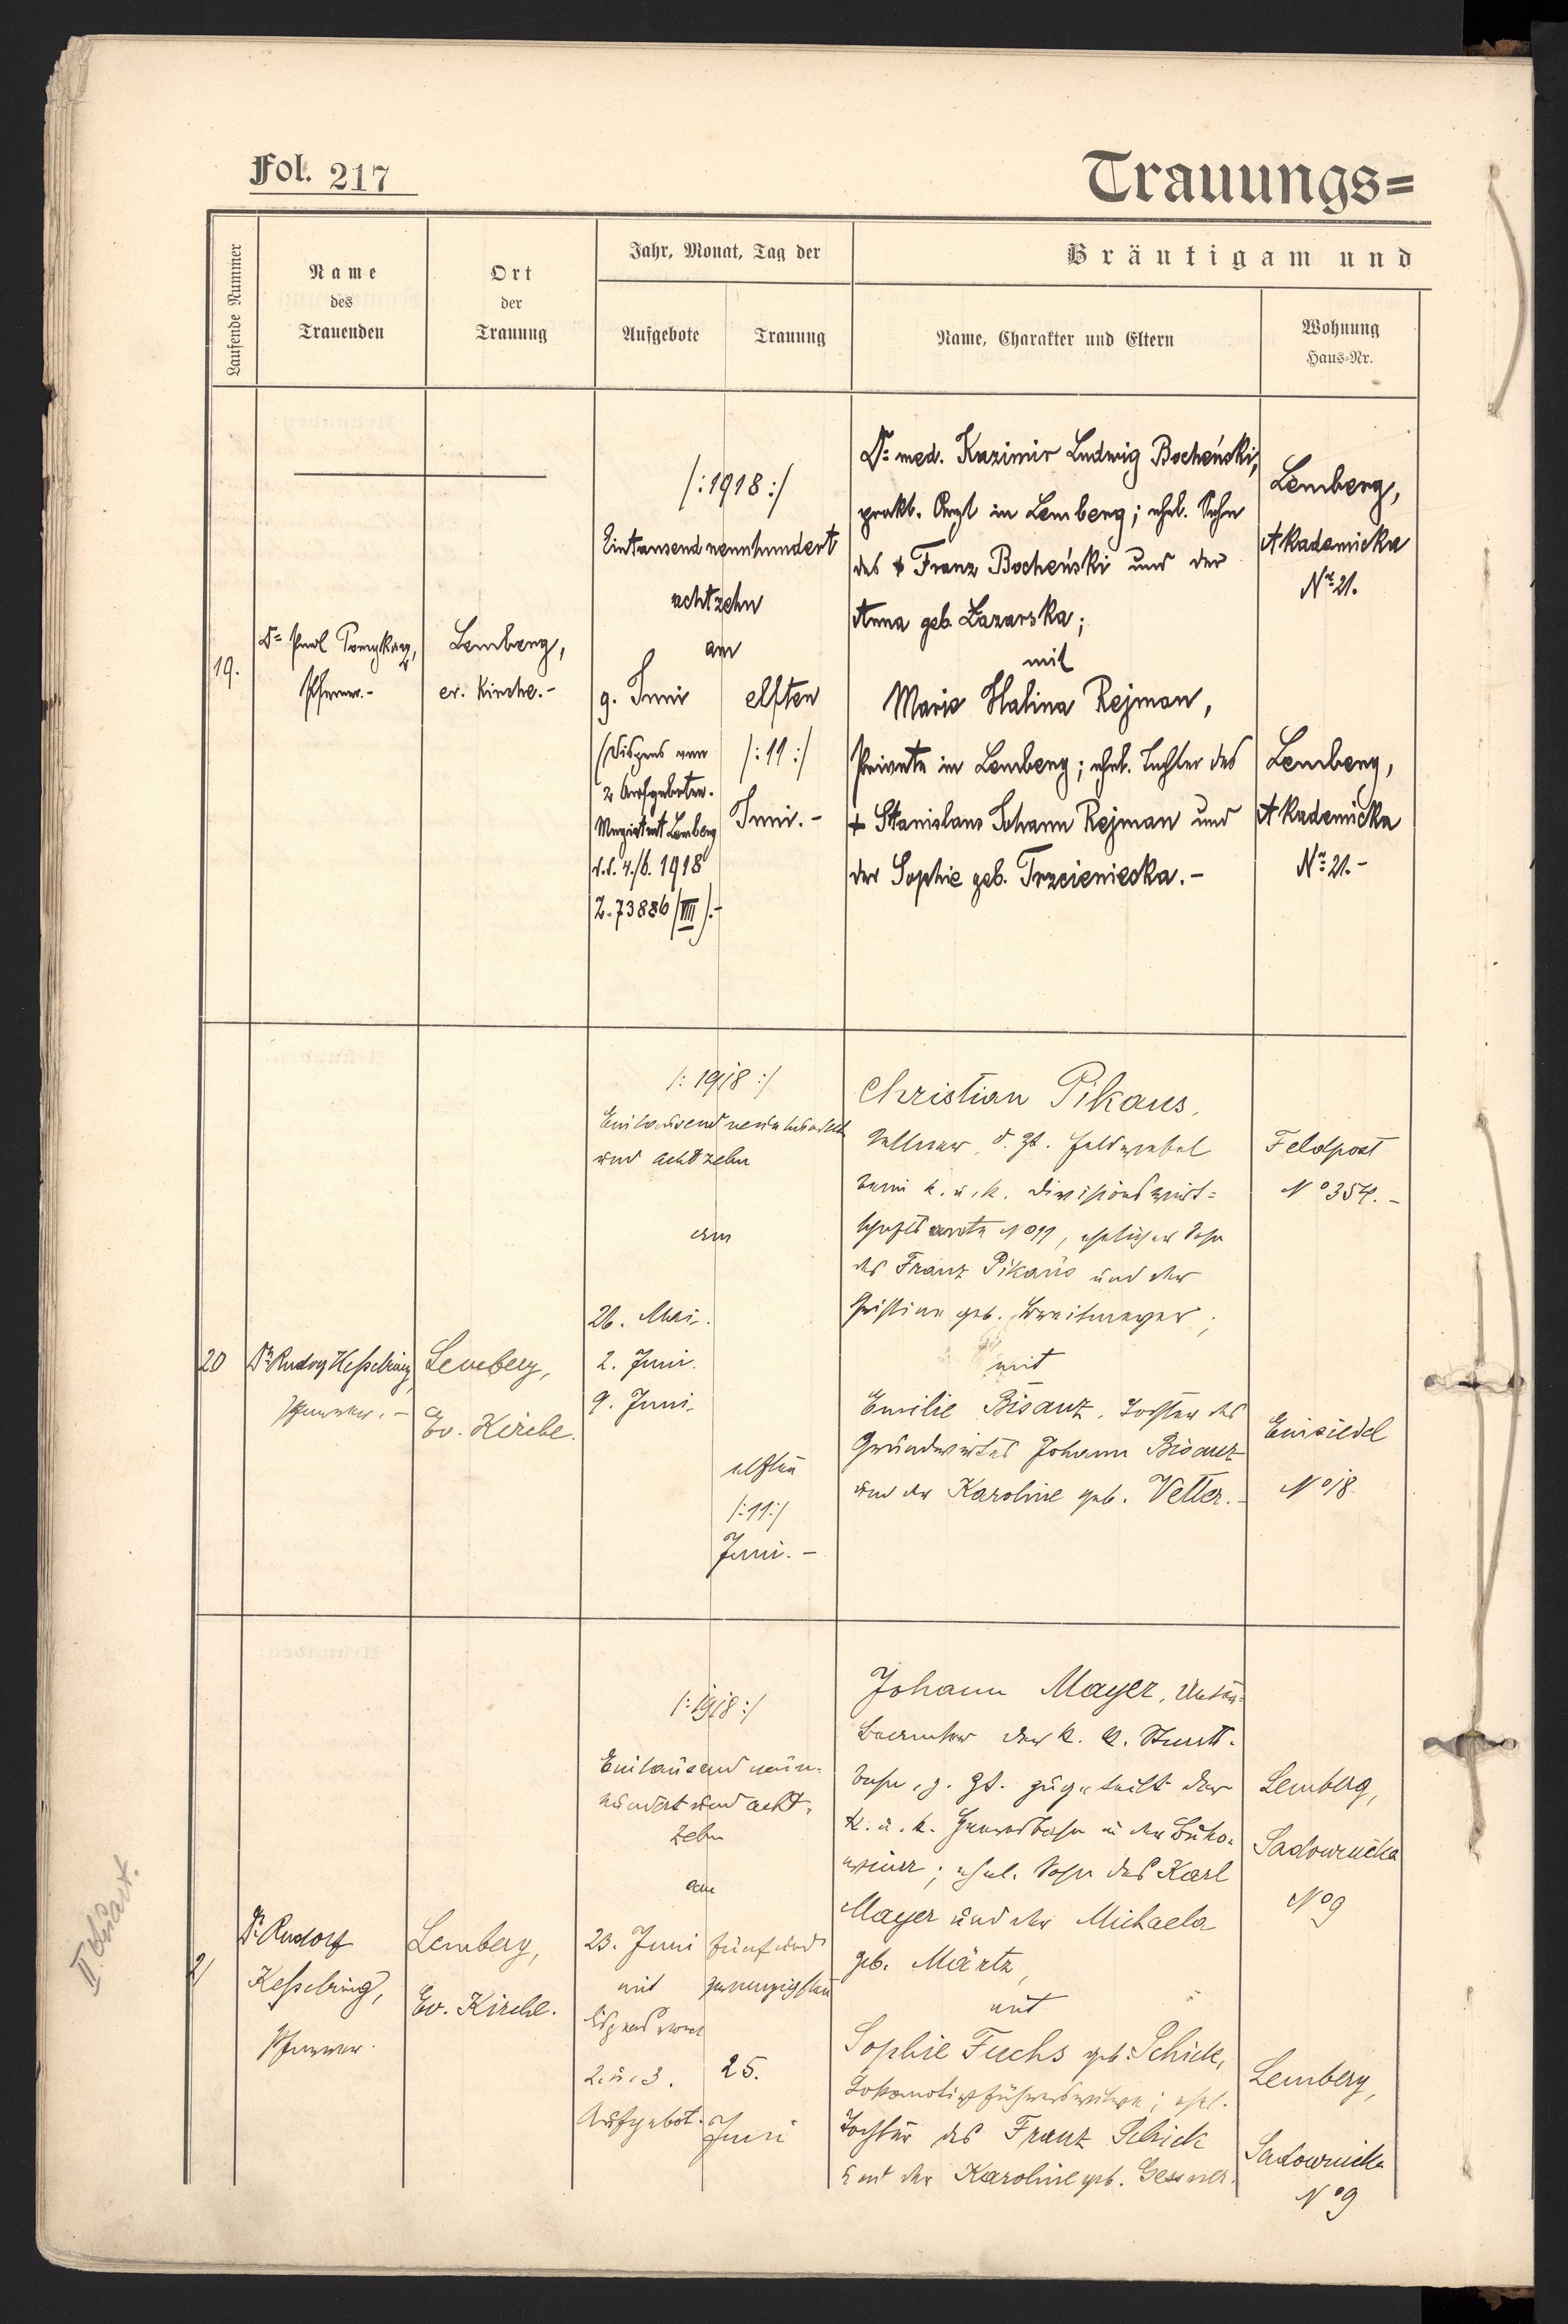 Fol. 217
Trauungs=
Laufende Nummer
Name
des
Trauenden
Ort
der
Trauung
Jahr, Monat, Tag der
Aufgebote
Trauung
Bräutigam und
Name, Charakter und Eltern
Wohnung
Haus=Nr.
19.
Pfarrer.-
Lemberg,
ev. Kirche.-
/:1918:/
Eintausendneunhundert
achtzehn
am
9. Juni
(Dispens von
2 Aufgeboten.
Magistrat Lemberg
d.d. 4./6. 1918
Z. 73886/VIII).-
elften
/:11:/
Juni.-
Dr. med. Kazimir Ludwig Bocheński,
prakt. Arzt in Lemberg; ehel. Sohn
des + Franz Bocheński und der
Anna geb. Łazarska;
mit
Maria Halina Rejman,
Private in Lemberg; ehel. Tochter des
+ Stanislaus Johann Rejman und
der Sophie geb. Trzcieniecka.-
Lemberg,
Akademicka
Nr. 21.
Lemberg,
Akademicka
Nr. 21.-
20
Dr. Rudolf Keßelring,
Pfarrer.-
Lemberg,
Ev. Kirche.
/:1918:/
Eintausendneunhundert
und achtzehn
am
26. Mai.
2. Juni.
9. Juni.
elften
/:11:/
Juni.-
Christian Pikaus,
d. Zt. Feldwebel
beim k. u. k. Divisionswirt=
schaftsamte No 11, ehelicher Sohn
des Franz Pikaus und der
geb. Breitmayer;
mit
Emilie Bisanz, Tochter des
Grundwirtes Johann Bisanz
und der Karoline geb. Vetter.-
Feldpost
No 354.-
Einsiedel
No 18.
21
Dr. Rudolf
Keßelring,
Pfarrer.
Lemberg,
Ev. Kirche.
/:1918:/
Eintausend neun=
hundert und acht=
zehn
am
23. Juni
mit
Dispens vom
2. u. 3.
Aufgebot.
fünfund
zwanzigsten
25.
Juni
Johann Mayer, Unter=
beamter der k. k. Staats=
bahn, z. Zt. zugeteilt der
k. u. k. Heeresbahn in der Buko=
wina; ehel. Sohn des Karl
Mayer und der Michaela
geb. Märtz,
mit
Sophie Fuchs geb. Schick,
Lokomotivführerswitwe; ehel.
Tochter des Franz Schick
und der Karoline geb. Gessner.
Lemberg,
Sadownicka
No 9
Lemberg,
Sadownicka
No 9
II. Quart.